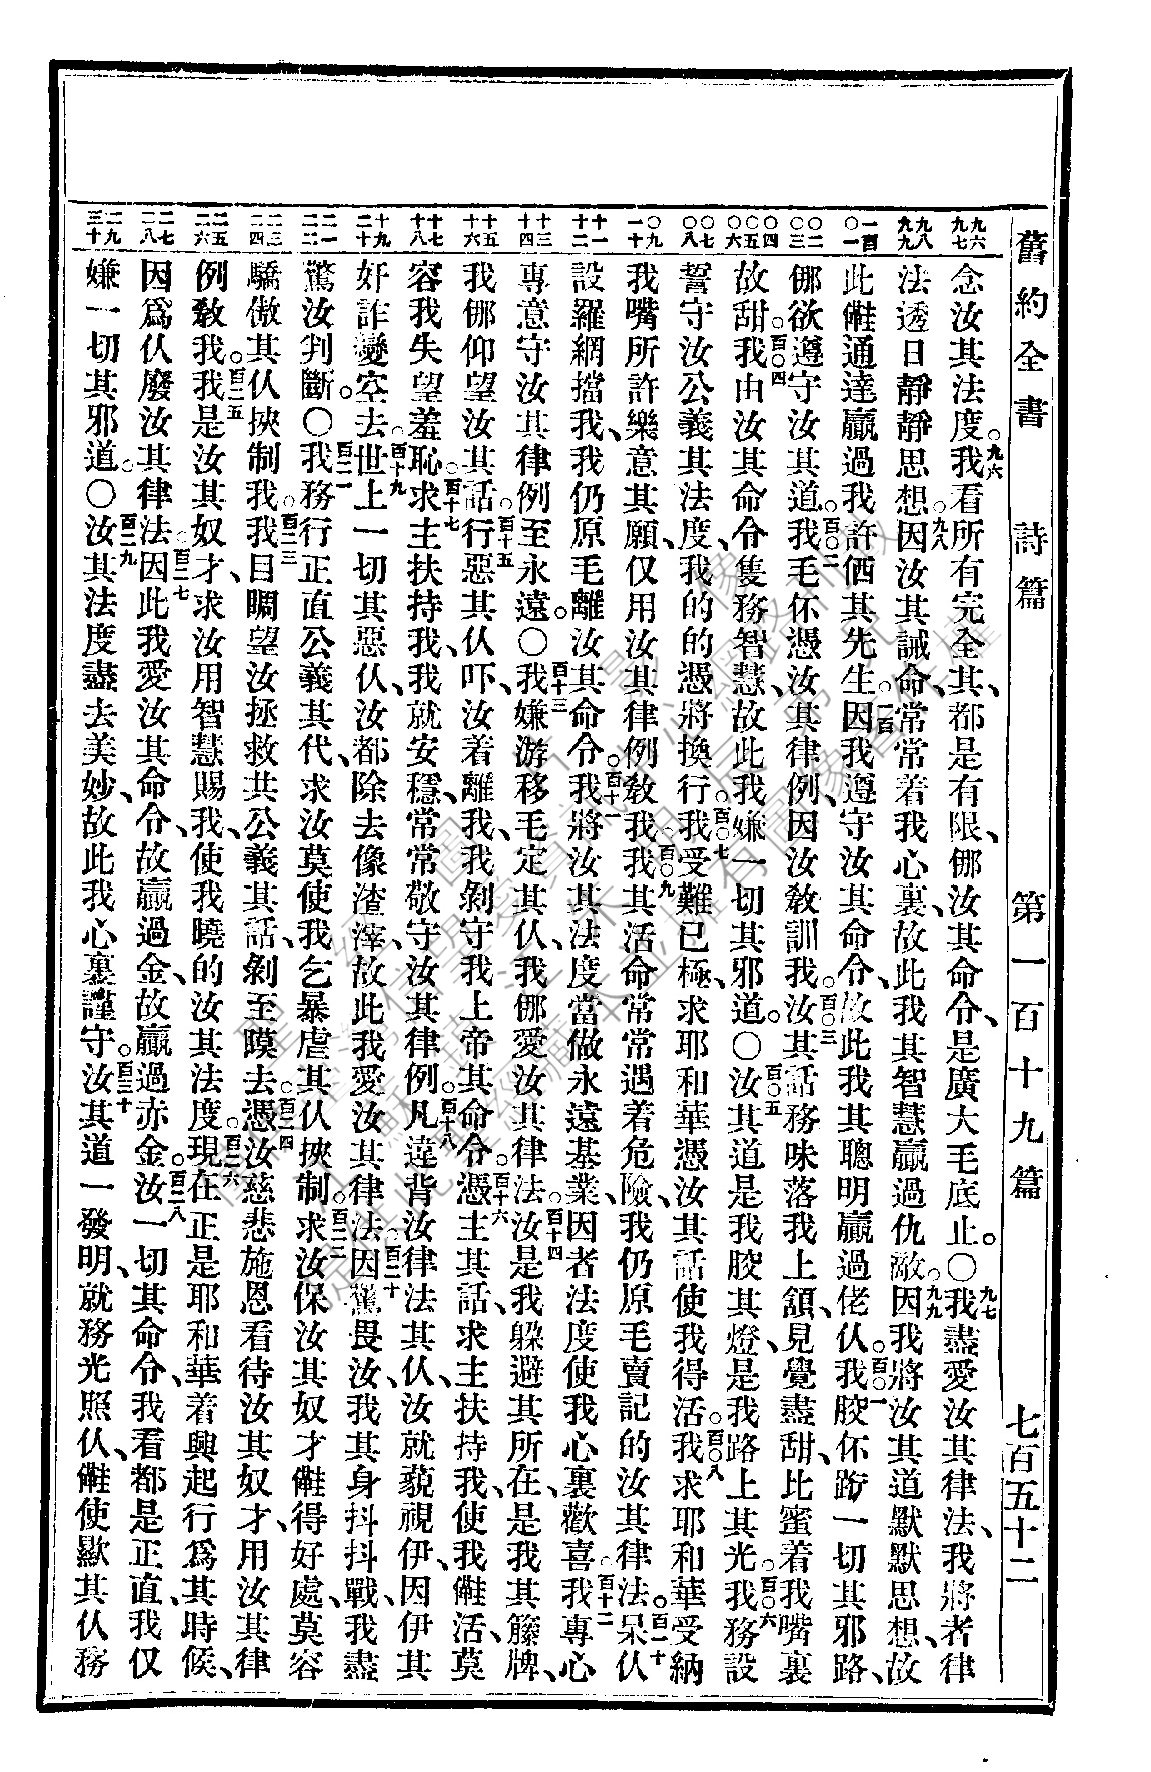 舊約全書 詩篇 第一百十九篇 七百五十二
九六 九七 九八 九九 一百 〇一 〇二 〇三 〇四 〇五 〇六 〇七 〇八 〇九 一十 十一 十二 十三 十四 十五 十六 十七 十八 十九 二十 二一 二二 二三 二四 二五 二六 二七 二八 二九 三十
念汝其法度。九六我看所有完全其、都是有限、倻汝其命令、是廣大毛底止。〇九七我盡愛汝其律法、我將者律
法透日靜靜思想。九八因汝其誡命、常常着我心裏、故此我其智慧贏過仇敵。九九因我將汝其道默默思想、故
此𣍐通達贏過我許価其先生。一百因我遵守汝其命令、故此我其聰明贏過佬仈。百〇一我骹伓跲一切其邪路、
倻欲遵守汝其道。百〇二我毛伓憑汝其律例、因汝敎訓我。百〇三汝其話務味落我上頷、見覺盡甜、比蜜着我嘴裏
故甜。百〇四我由汝其命令隻務智慧、故此我嫌一切其邪道。〇百〇五汝其道是我骹其燈、是我路上其光。百〇六我務設
誓守汝公義其法度、我的的憑將換行。百〇七我受難已極、求耶和華憑汝其話使我得活。百〇八我求耶和華受納
我嘴所許樂意其願、仅用汝其律例敎我。百〇九我其活命常常遇着危險、我仍原毛賣記的汝其律法。百一十呆仈
設羅網擋我、我仍原毛離汝其命令。百十一我將汝其法度當做永遠基業、因者法度使我心裏歡喜。百十二我專心
專意守汝其律例至永遠。〇百十三我嫌游移毛定其仈、我倻愛汝其律法。百十四汝是我躲避其所在、是我其籐牌、
我倻仰望汝其話。百十五行惡其仈吓、汝着離我、我剝守我上帝其命令。百十六憑主其話、求主扶持我、使我𣍐活、莫
容我失望羞恥。百十七求主扶持我、我就安穩、常常敬守汝其律例。百十八凡違背汝律法其仈、汝就藐視伊、因伊其
奸詐變空去。百十九世上一切其惡仈、汝都除去像渣滓、故此我愛汝其律法。百二十因驚畏汝、我其身抖抖戰、我盡
驚汝判斷。〇百二一我務行正直公義其代、求汝莫使我乞暴虐其仈挾制。百二二求汝保汝其奴才𣍐得好處、莫容
驕傲其仈挾制我。百二三我目瞯望汝拯救共公義其話、剝至暯去。百二四憑汝慈悲施恩看待汝其奴才、用汝其律
例敎我。百二五我是汝其奴才、求汝用智慧賜我、使我曉的汝其法度。百二六現在正是耶和華着興起行爲其時候、
因爲仈廢汝其律法。百二七因此我愛汝其命令、故贏過金、故贏過赤金。百二八汝一切其命令、我看都是正直、我仅
嫌一切其邪道。〇百二九汝其法度盡去美妙、故此我心裏謹守。百三十汝其道一發明、就務光照仈、𣍐使歉其仈務